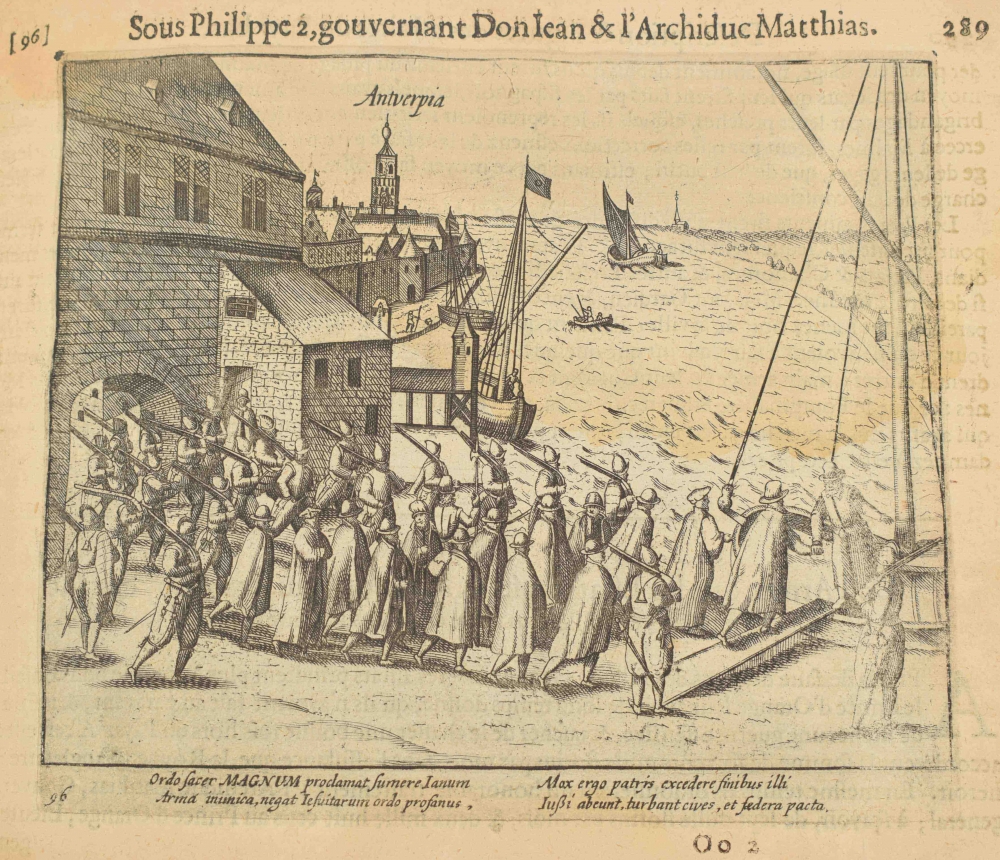 [96]
Sous Philippe 2, gouvernant Don Iean & l'Archiduc Matthias.
289
Antverpia
Ordo sacer MAGNUM proclamat sumere Ianum
Arma inimica, negat Iesuitarum ordo profanus,
Mox ergo patrijs excedere finibus illi
Iußi abeunt, turbant cives, et fœdera pacta.
96
Oo 2